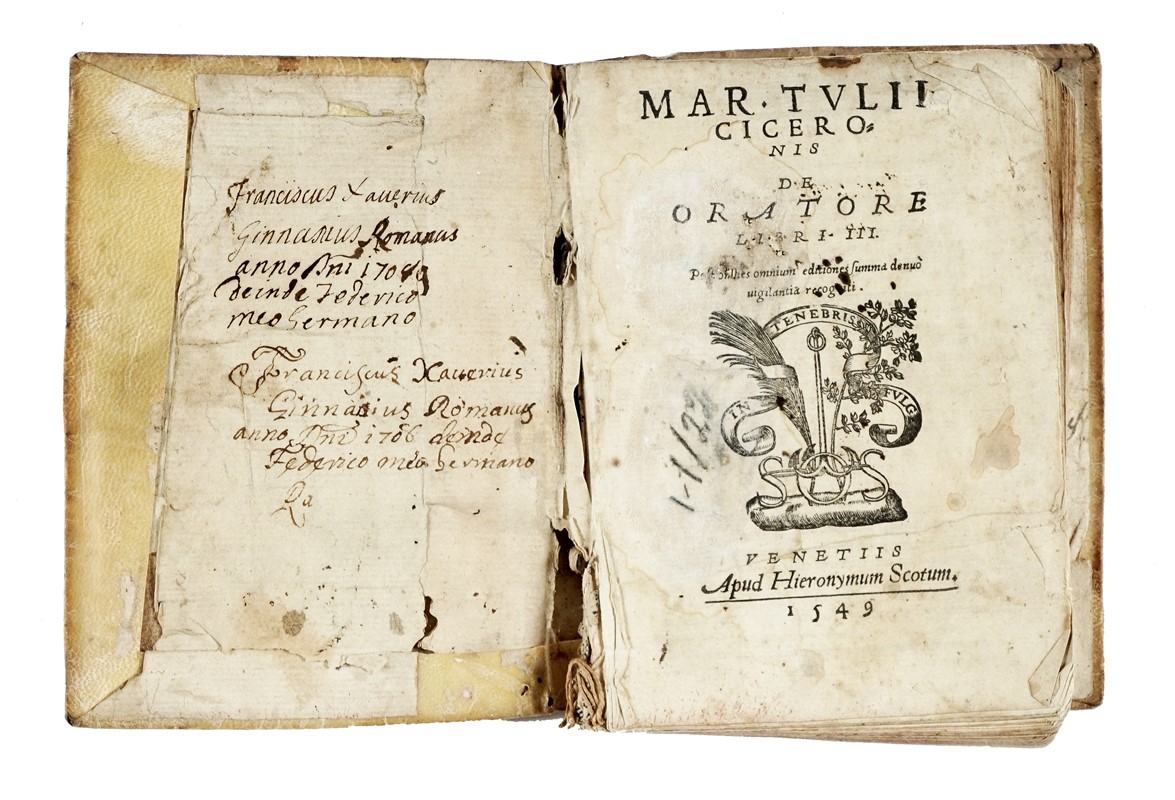 Franciscus Xauerius
Ginnasius Romanus
anno Dni 1706
deinde Federico
meo hermano
Franciscus Xauerius
Ginnasius Romanus
anno Dni 1706 deinde
Federico meo hermano
MAR · TVLII
CICERO⸗
NIS
DE
ORATORE
LIBRI · III.
Post omnes omnium editiones summa denuò
uigilantia recogniti .
IN TENEBRIS FVLG
SOS
1-1/22
VENETIIS
Apud Hieronymum Scotum.
1549